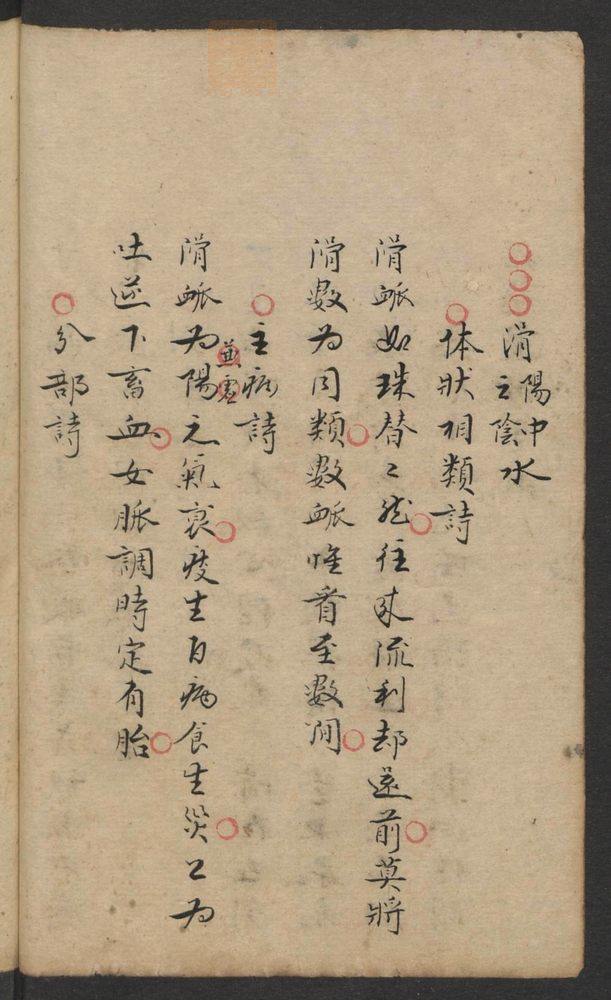 滑 陽中之陰 水
体狀相類詩
滑脈如珠替〻然往來流利却還前莫將
滑數為同類數脈惟看至數間
主病詩
滑脈為陽元氣衰痰生百病食生災上為
吐逆下畜血女脈調時定有胎
分部詩